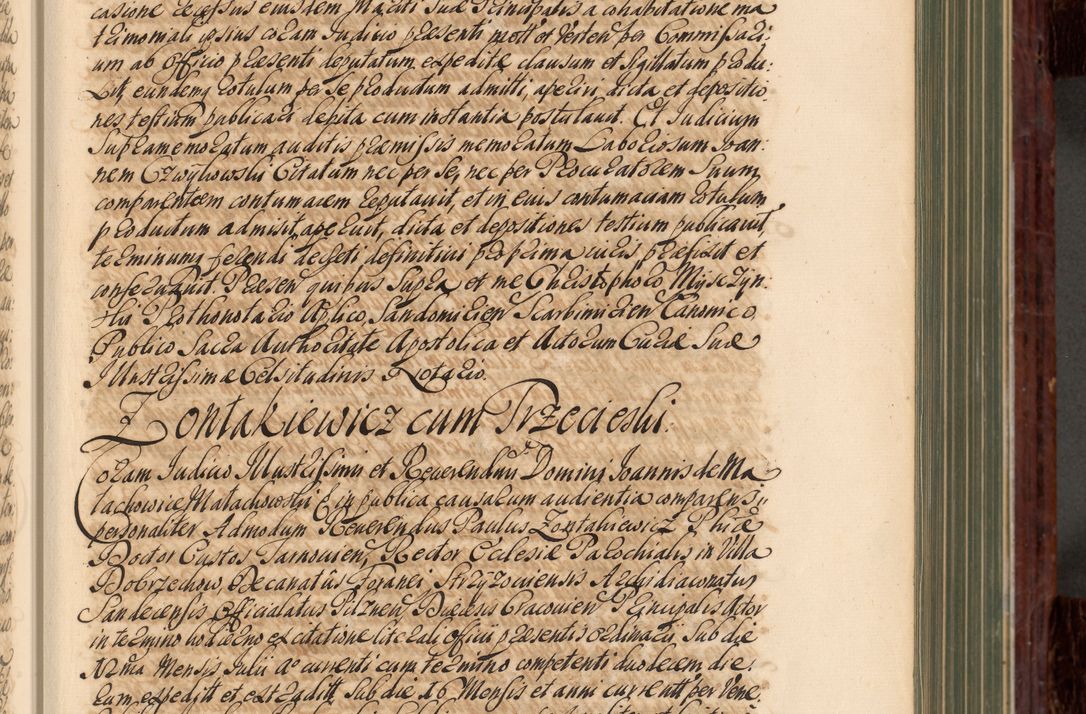 casione recessus eiusdem Mariti Suæ Principalis a cohabitatione ma
trimoniali ipsius coram Iudicio præsenti mott et verten per Commissari:
um ab Officio præsenti deputatum expedite clausum et Sigillatum produ:
xit, eundemq rotulum per Se productum admitti, aperiri, dicta et depositio
nes testium publicari debita cum instantia postulavit. Et Iudicium
Supramemoratum auditis præmissis memoratum Laboriosum Ioan:
nem Czwykowski Citatum nec per Se, nec per Procuratorem Suum
comparentem contumacem reputavit, et in eius contumaciam rotulum
productum admisit, aperuit, dicta et depositiones testium publicavit,
terminumq ferendi decreti definitivi pro prima iuris præfixit et
conservavit Præsen quibus Supra et me Christophoro Mysczyn:
ski Prothonotario Aplico Sandomirien Scarbimirien Canonico
Publico Sacra Authoritate Apostolica et Actorum Curiæ Suæ
Illustrissimæ Celsitudinis Notario.
Zontakiewicz cum Trzecieski.
Coram Iudicio Illustrissimi et Reverendmi Domini Ioannis de Ma
lachowice Małachowski in publica causarum audientia comparens
personaliter Admodum Reverendus Paulus Zontakiewicz Phiæ
Doctor Custos Tarnovien, Rector Ecclesiæ Parochialis in Villa
Dobrzechow, Decanatûs Foranei Strzyzoviensis Archidiaconatus
Sandecensis Officialatus Pilznen Diæcesis Cracovien Principalis Actor
in termino hodierno ex citatione literali officii præsentis ordinarii Sub die
12ma Mensis Iulii Ao currenti cum termino competenti duodecem die:
rum expeditt et extraditt Sub die 16 Mensis et anni currentt per Vene: